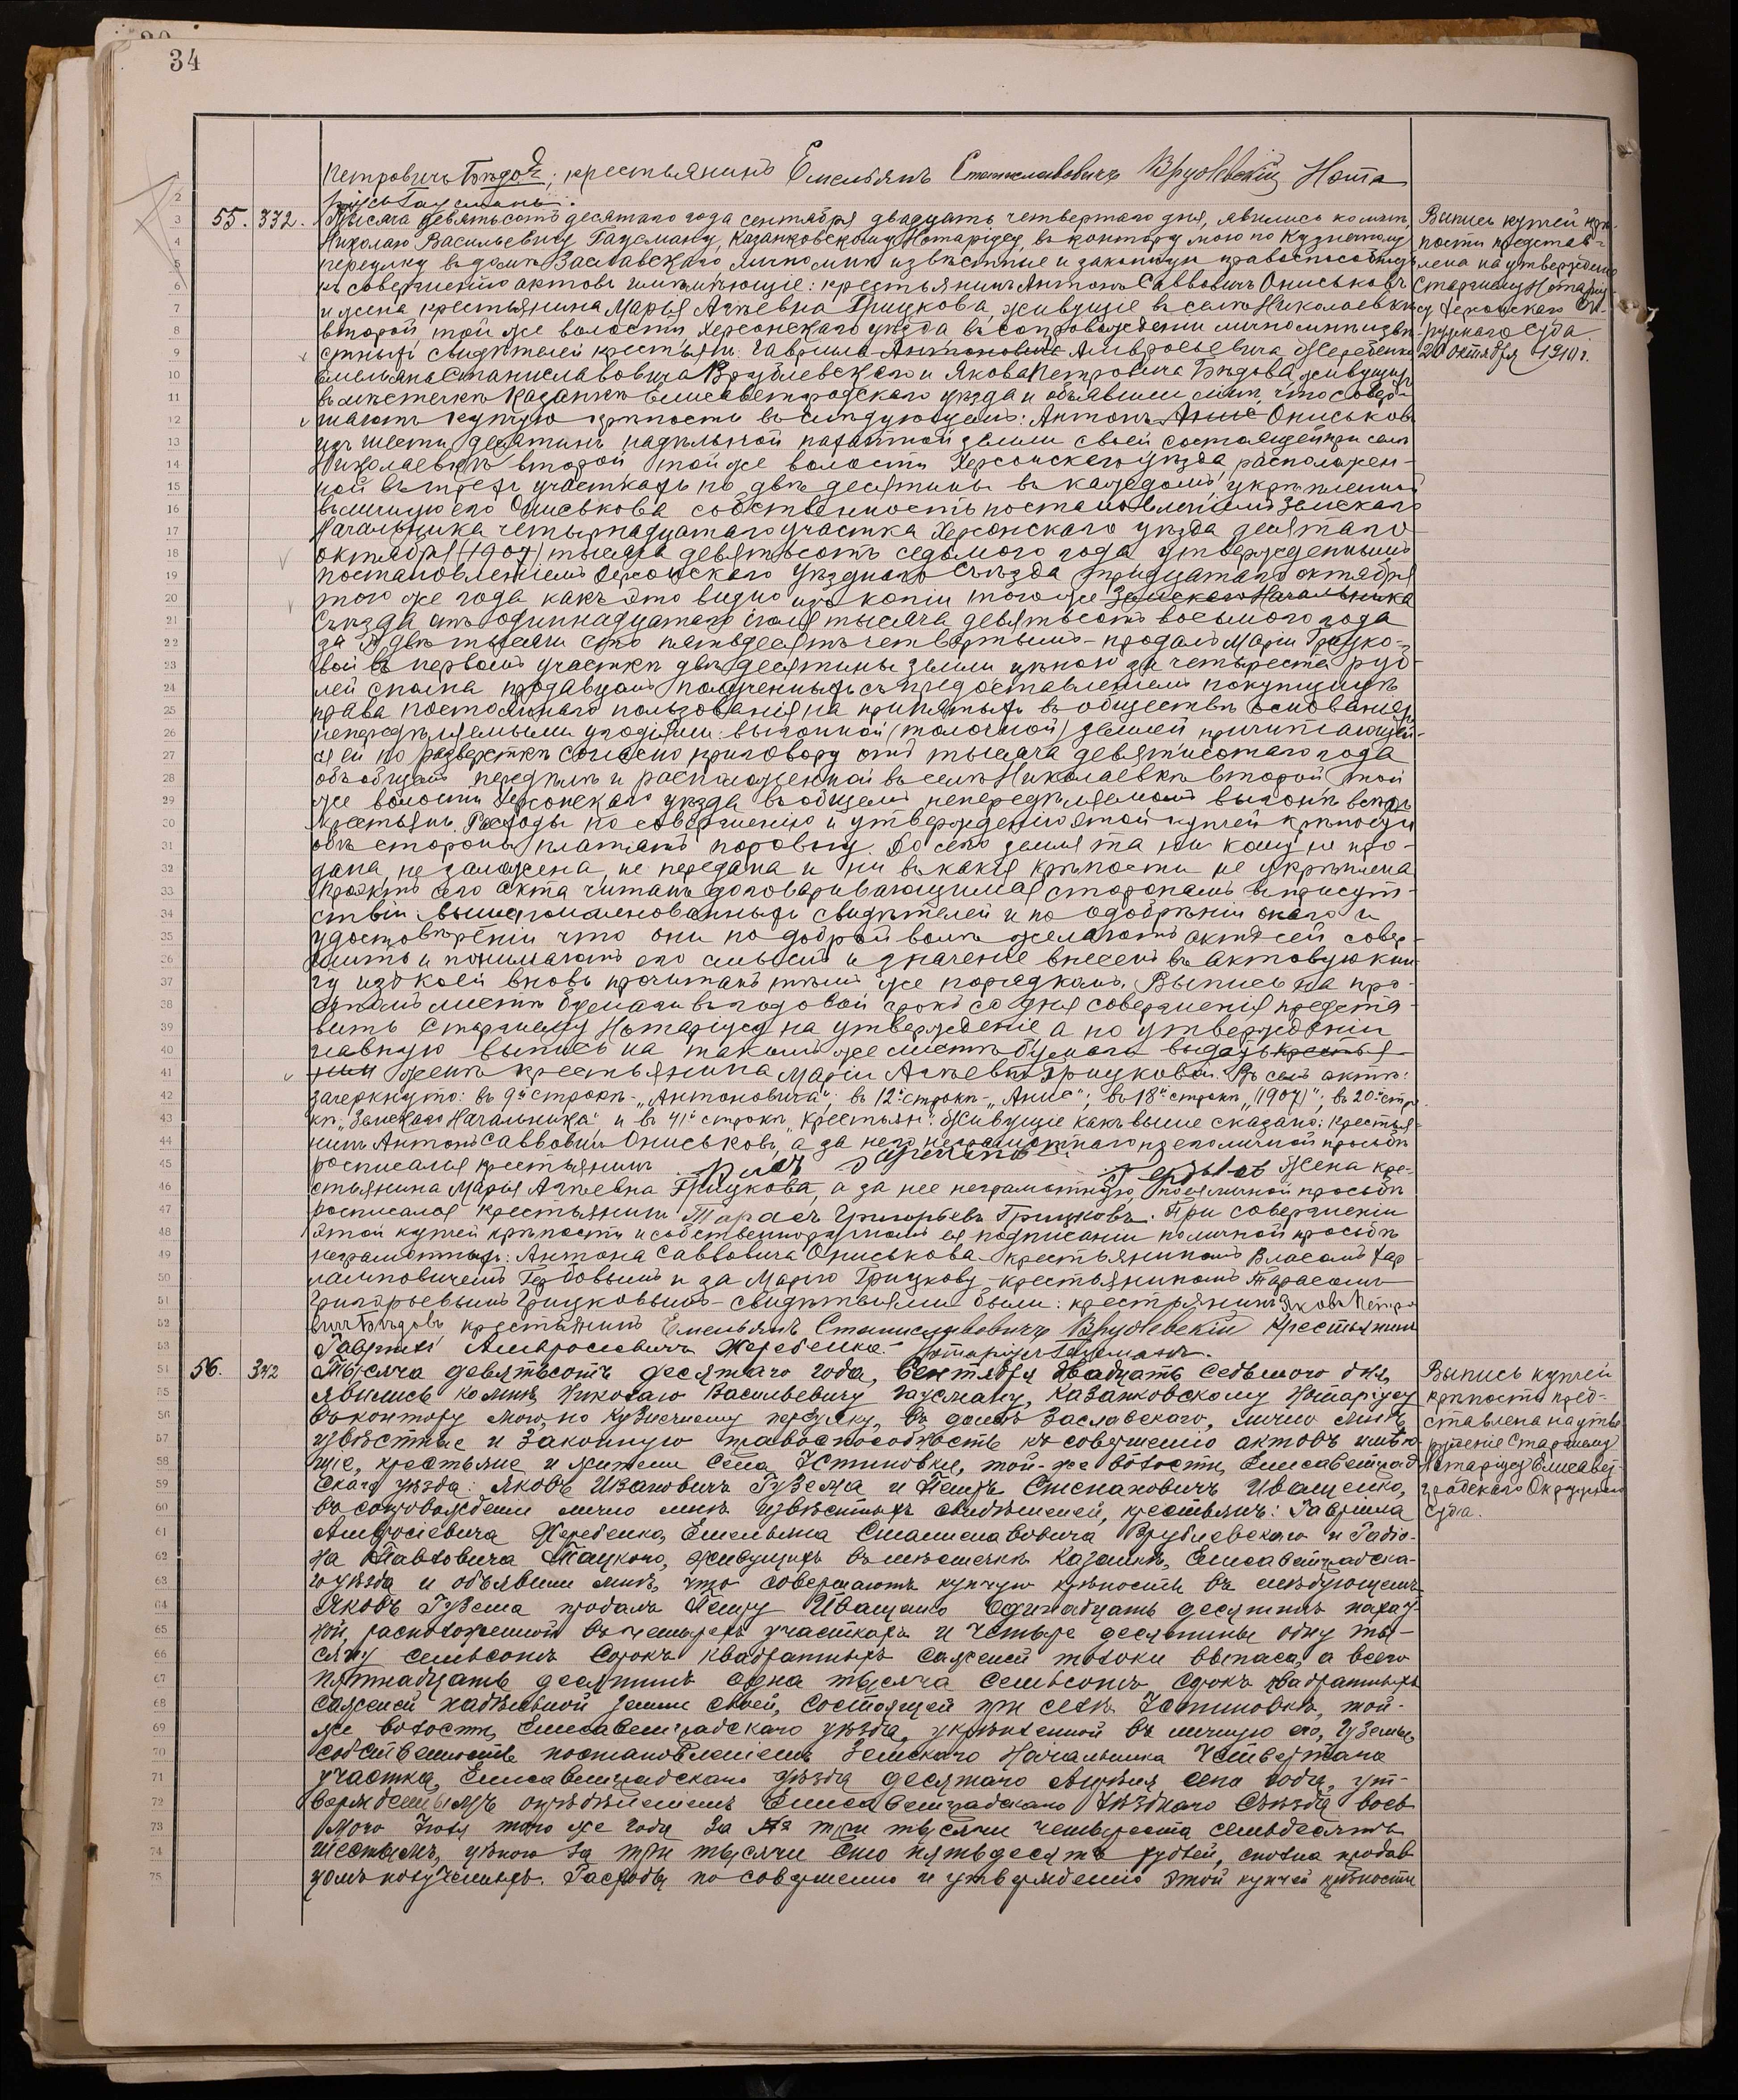 34
Петровичъ Бѣдовъ; крестьянинъ Емельянъ Станиславовичъ Врублевскій Нота
ріусъ Гаусманъ.
55. 332. Тысяча девятьсотъ десятаго года сентября двадцать четвертаго дня, явились ко мнѣ,
Николаю Васильевичу Гаусману, Казанковскому Нотаріусу, въ контору мою по Кузнечному
переулку въ домѣ Заславскаго лично мнѣ извѣстные и законную правоспособность
къ совершенію актовъ имѣющіе: крестьянинъ Антонъ Савовичъ Ониськовъ
и жена крестьянина Марья Агѣевна Грицкова, живущіе въ селѣ Николаевкѣ
второй, той же волости, Херсонскаго уѣзда въ сопровожденіи лично мнѣ извѣ-
стныхъ свидѣтелей крестьянъ: Гавріила Антоновича Амвросьевича Жеребенко
Емельяна Станиславовича Врублевскаго и Якова Петровича Бѣдова, живущихъ
въ мѣстечкѣ Казанкѣ Елисаветградскаго уѣзда и объявили мнѣ, что совер-
шаютъ купчую крѣпость въ слѣдующемъ: Антонъ Анис Ониськовъ
изъ шести десятинъ надѣльной пахатной земли своей состоящей при селѣ
Николаевкѣ второй той же волости Херсонскаго уѣзда, расположен-
ной въ трехъ участкахъ по двѣ десятины въ каждомъ, укрѣпленной
въ личную его Ониськова собственность постановленіемъ Земскаго
Начальника четырнадцатаго участка Херсонскаго уѣзда десятаго
октября (1907) тысяча девятьсотъ седьмого года утвержденнымъ
постановленіемъ Херсонскаго Уѣзднаго Съѣзда тридцатаго октября
того же года какъ это видно изъ копіи того же Земскаго Начальника
Съѣзда отъ одиннадцатаго іюля тысяча девятьсотъ восьмого года
за № двѣ тысячи сто пятьдесятъ четвертымъ - продалъ Маріи Грицко-
вой въ первомъ участкѣ двѣ десятины земли цѣною за четыреста руб-
лей сполна продавцомъ полученныхъ съ предоставленіемъ покупщицѣ
права постояннаго пользованія на принятыхъ въ обществѣ основаніяхъ
непередѣляемыми угодіями: выгонной (толочной) землей причитающей-
ся ей по разверсткѣ согласно приговору отъ тысяча девятисотаго года
объ общемъ передѣлѣ и расположенной въ селѣ Николаевкѣ второй той
же волости Херсонскаго уѣзда въ общемъ непередѣляемомъ выгонѣ всѣхъ
крестьянъ. Расходы по совершенію и утвержденію этой купчей крѣпости
обѣ стороны платятъ поровну. До сего земля та никому не про-
дана, не заложена, не передана и ни въ какія крѣпости не укрѣплена.
Проектъ сего акта читанъ договаривающимся сторонамъ въ присут-
ствіи вышепоименованныхъ свидѣтелей и по одобреніи онаго и
удостовѣреніи что они по доброй волѣ желаютъ актъ сей совер-
шить и понимаютъ его смыслъ и значеніе внесенъ въ актовую кни-
гу изъ коей вновь прочитанъ тѣмъ же порядкомъ. Выпись на про-
стомъ листѣ бумаги въ годовой срокъ со дня совершенія предста-
вить Старшему Нотаріусу на утвержденіе, а по утвержденіи
главную выпись на такомъ же листѣ бумаги выдать крестья
нин женѣ крестьянина Маріи Агѣевнѣ Грицковой. Въ семъ актѣ:
зачеркнуто: въ 9й строкѣ - „Антоновича“; въ 12й строкѣ - „Анис“; въ 18й строкѣ „(1907)“; въ 20й стро
кѣ „Земскаго Начальника“ и въ 41й строкѣ „крестьян“. Живущіе какъ выше сказано: крестья-
нинъ Антонъ Савовичъ Ониськовъ, а за него неграмотнаго по его личной просьбѣ
росписался крестьянинъ Жена кре-
стьянина Марья Агѣевна Грицкова, а за нее неграмотную, по ея личной просьбѣ
росписался крестьянинъ Тарасъ Григорьевъ Грицковъ. При совершеніи
этой купчей крѣпости и собственноручномъ ея подписаніи по личной просьбѣ
неграмотныхъ: Антона Савовича Ониськова - крестьяниномъ Власомъ Хар
лампіевичемъ Гербовымъ и за Марію Грицкову - крестьяниномъ Тарасомъ
Григорьевымъ Грицковымъ - свидѣтелями были: крестьянинъ Яковъ Петро
вичъ Бѣдовъ крестьянинъ Емельянъ Станиславовичъ Врублевскій Крестьянинъ
Гавріилъ Амвросіевичъ Жеребенко. Нотаріусъ Гаусманъ.
Выпись купчей крѣ-
пости представ-
лена на утвержденіе
Старшему Нотаріу-
су Херсонскаго Ок-
ружнаго Суда.
20 октября 1910 г.
56. 342 Тысяча девятьсотъ десятаго года, Сентября двадцать седьмого дня,
явились ко мнѣ, Николаю Васильевичу Гаусману, Казанковскому Нотаріусу
въ контору мою, по Кузнечному переулку, въ домѣ Заславскаго, лично мнѣ
извѣстные и законную правоспособность къ совершенію актовъ имѣю
щіе, крестьяне и жители села Устиновки, той-же волости, Елисаветград
скаго уѣзда: Яковъ Ивановичъ Гузема и Петръ Степановичъ Иващенко,
въ сопровожденіи лично мнѣ извѣстныхъ свидѣтелей, крестьянъ: Гавріила
Амвросіевича Жеребенко, Емельяна Станиславовича Врублевскаго и Родіо-
на Павловича Тацкого, живущихъ въ мѣстечкѣ Казанкѣ, Елисаветградска-
го уѣзда и объявили мнѣ, что совершаютъ купчую крѣпость въ слѣдующемъ
Яковъ Гузема продалъ Петру Иващенко одинадцать десятинъ пахат-
ной, расположенной въ четырехъ участкахъ и четыре десятины одну ты-
сячу семьсотъ сорокъ квадратныхъ саженей толоки выпаса, а всего
пятнадцать десятинъ одна тысяча семьсотъ сорокъ квадратныхъ
саженей надѣльной земли своей, состоящей при селѣ Устиновкѣ, той-
же волости, Елисаветградскаго уѣзда, укрѣпленной въ личную его, Гуземы,
собственность постановленіемъ Земскаго Начальника Четвертаго
участка, Елисаветградскаго уѣзда десятаго Апрѣля сего года, ут-
вержденнымъ опредѣленіемъ Елисаветградскаго Уѣзднаго Съѣзда вось
мого Іюля того же года за № три тысячи четыреста семьдесятъ
шестымъ, цѣною за три тысячи сто пятьдесятъ рублей, сполна продав
цомъ полученныхъ. Расходы по совершенію и утвержденію этой купчей крѣпости
Выпись купчей
крѣпости пред-
ставлена на утвер
жденіе Старшему
Нотаріусу Елисавет-
градскаго Окружнаго
Суда.